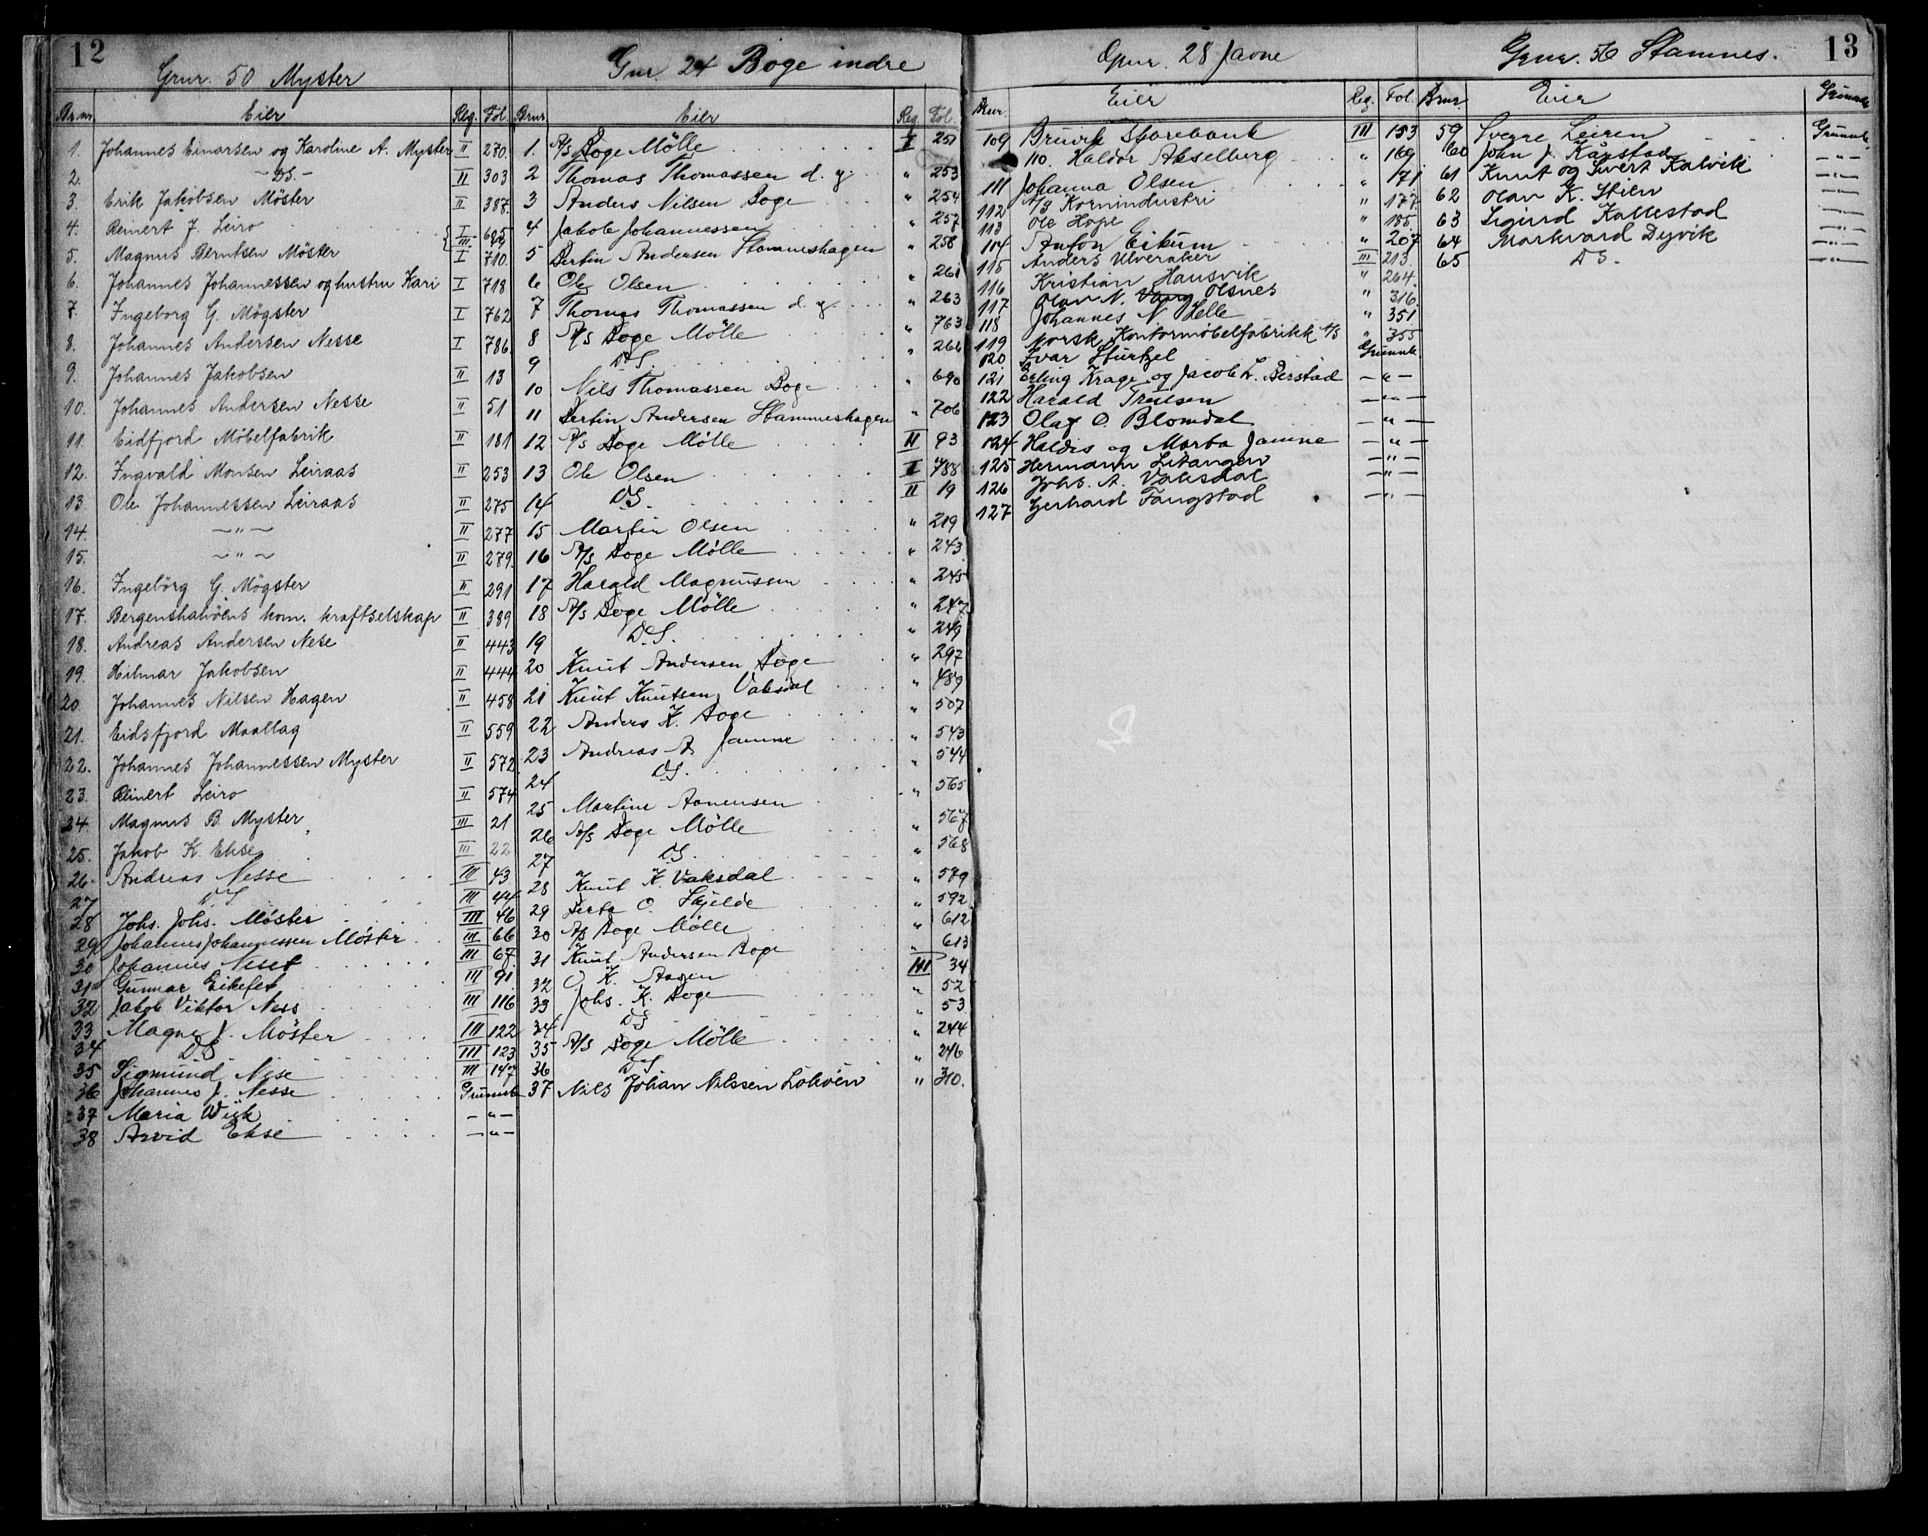 12
Gnr. 50 Myster
Br.nr. Eier Reg. Fol.
1. Johannes Einarsen og Karoline A. Myster II 270.
2. - DS. - II 303
3. Erik Jakobsen Möster II 387.
4. Reinert J. Leiro I 695
5. Magnus Berntsen Möster I 710.
6. Johannes Johannessen og hustru Kari I 718
7. Ingeborg G. Mögster I 762
8. Johannes Andersen Nesse I 786.
9. Johannes Jakobsen II 13
10. Johannes Andersen Nesse II 51
11. Eidfjord Möbelfabrik II 181
12. Ingvald Monsen Leiraas II 253
13. Ole Johannessen Leiraas II 275
14. - " - II 277
15. - " - II 279.
16. Ingebörg G. Mögster II 291
17. Bergenshalvöens kom. kraftselskap II 389
18. Andreas Andersen Nese II 443
19. Hilmar Jakobsen II 444
20 Johannes Nilsen Hagen II 458
21. Eidsfjord Maallag II 559
22. Johannes Johannessen Myster II 572
23. Reinert Leiro II 574
24 Magnus B. Myster III 21
25. Jakob K. Ekse III 22
26. Andreas Nesse III 43
27 DS III 44
28 Johs. Johs. Möster III 46
29 Johannes Johannessen Möster III 66
30 Johannes Neset III 67
31 Gunnar Eikefet III 91
32 Jakob Viktor Ness III 116
33 Magne J. Möster III 122
34 DS III 123
35 Sigmund Nese III 147
36 Johannes J. Nesse Grunnb
37 Maria Wiik - " -
38 Arvid Ekse - " -
Gnr 24 Boge indre
Brnr Eier Reg. Fol.
1. A/s Boge Mölle I 251
2 Thomas Thomassen d. y. " 253
3 Anders Nilsen Boge " 254
4 Jakob Johannessen " 257
5 Bertin Andersen Stamneshagen " 258
6 Ole Olsen " 261
7 Thomas Thomassen d. y. " 263
8 A/s Boge Mölle " 763
9 DS " 266
10 Nils Thomassen Boge " 690
11 Bertin Andersen Stamneshagen " 706
12 A/s Boge Mölle II 93
13 Ole Olsen I 788
14 DS. II 19
15 Martin Olsen " 219
16 A/s Boge Mölle " 243
17 Harald Magnussen " 245
18 A/s Boge Mölle " 247
19 DS. " 249
20 Knut Andersen Boge " 297
21 Knut Knutsen Vaksdal " 459
22 Anders K. Boge " 507
23 Andreas A. Jamne " 543
24 DS. " 544
25 Martine Aanensen " 565
26 A/s Boge Mölle " 567
27 DS. " 568
28 Knut K. Vaksdal " 579
29 Berta O. Skjelde " 592
30 A/s Boge Mölle " 612
31 Knut Andersen Boge " 613
32 O. K. Aasen III 34
33 Johs. K. Boge " 52
34 DS " 53
35 A/s Boge Mölle " 244
36 DS " 246
37 Nils Johan Nilssen Lohöen " 310.
Gnr. 28 Javne
Bnr. Eier Reg. Fol.
109 Bruvik Sparebank III 153
110. Haldor Akselberg " 169
111 Johanna Olsen " 171
112 A/s Kornindustri " 177
113 Ole Hope " 185
114 Anton Eikum " 207
115 Anders Ulveraker III 213
116 Kristian Hausvik " 264
117 Olav N. Vang Olsnes " 316
118 Johannes N. Helle " 351
119 Norsk Kontormøbelfabrikk A/s " 355
120 Ivar Sturtzel Grunnb
121 Erling Krage og Jacob L. Berstad - " -
122 Harald Trulsen - " -
123 Olaf O. Blomdal - " -
124 Haldis og Marta Jamne - " -
125 Hermann Litangen - " -
126 Johs. A. Vaksdal - " -
127 Gerhard Fangstad - " -
13
Gnr. 56 Stamnes.
Brnr. Eier Grunnb
59 Sverre Leiren Grunnb.
60 John J. Kårstad - " -
61 Knut og Sivert Kalvik - " -
62 Olav K. Stien - " -
63 Sigurd Kallestad - " -
64 Markvard Dyvik - " -
65 DS. - " -